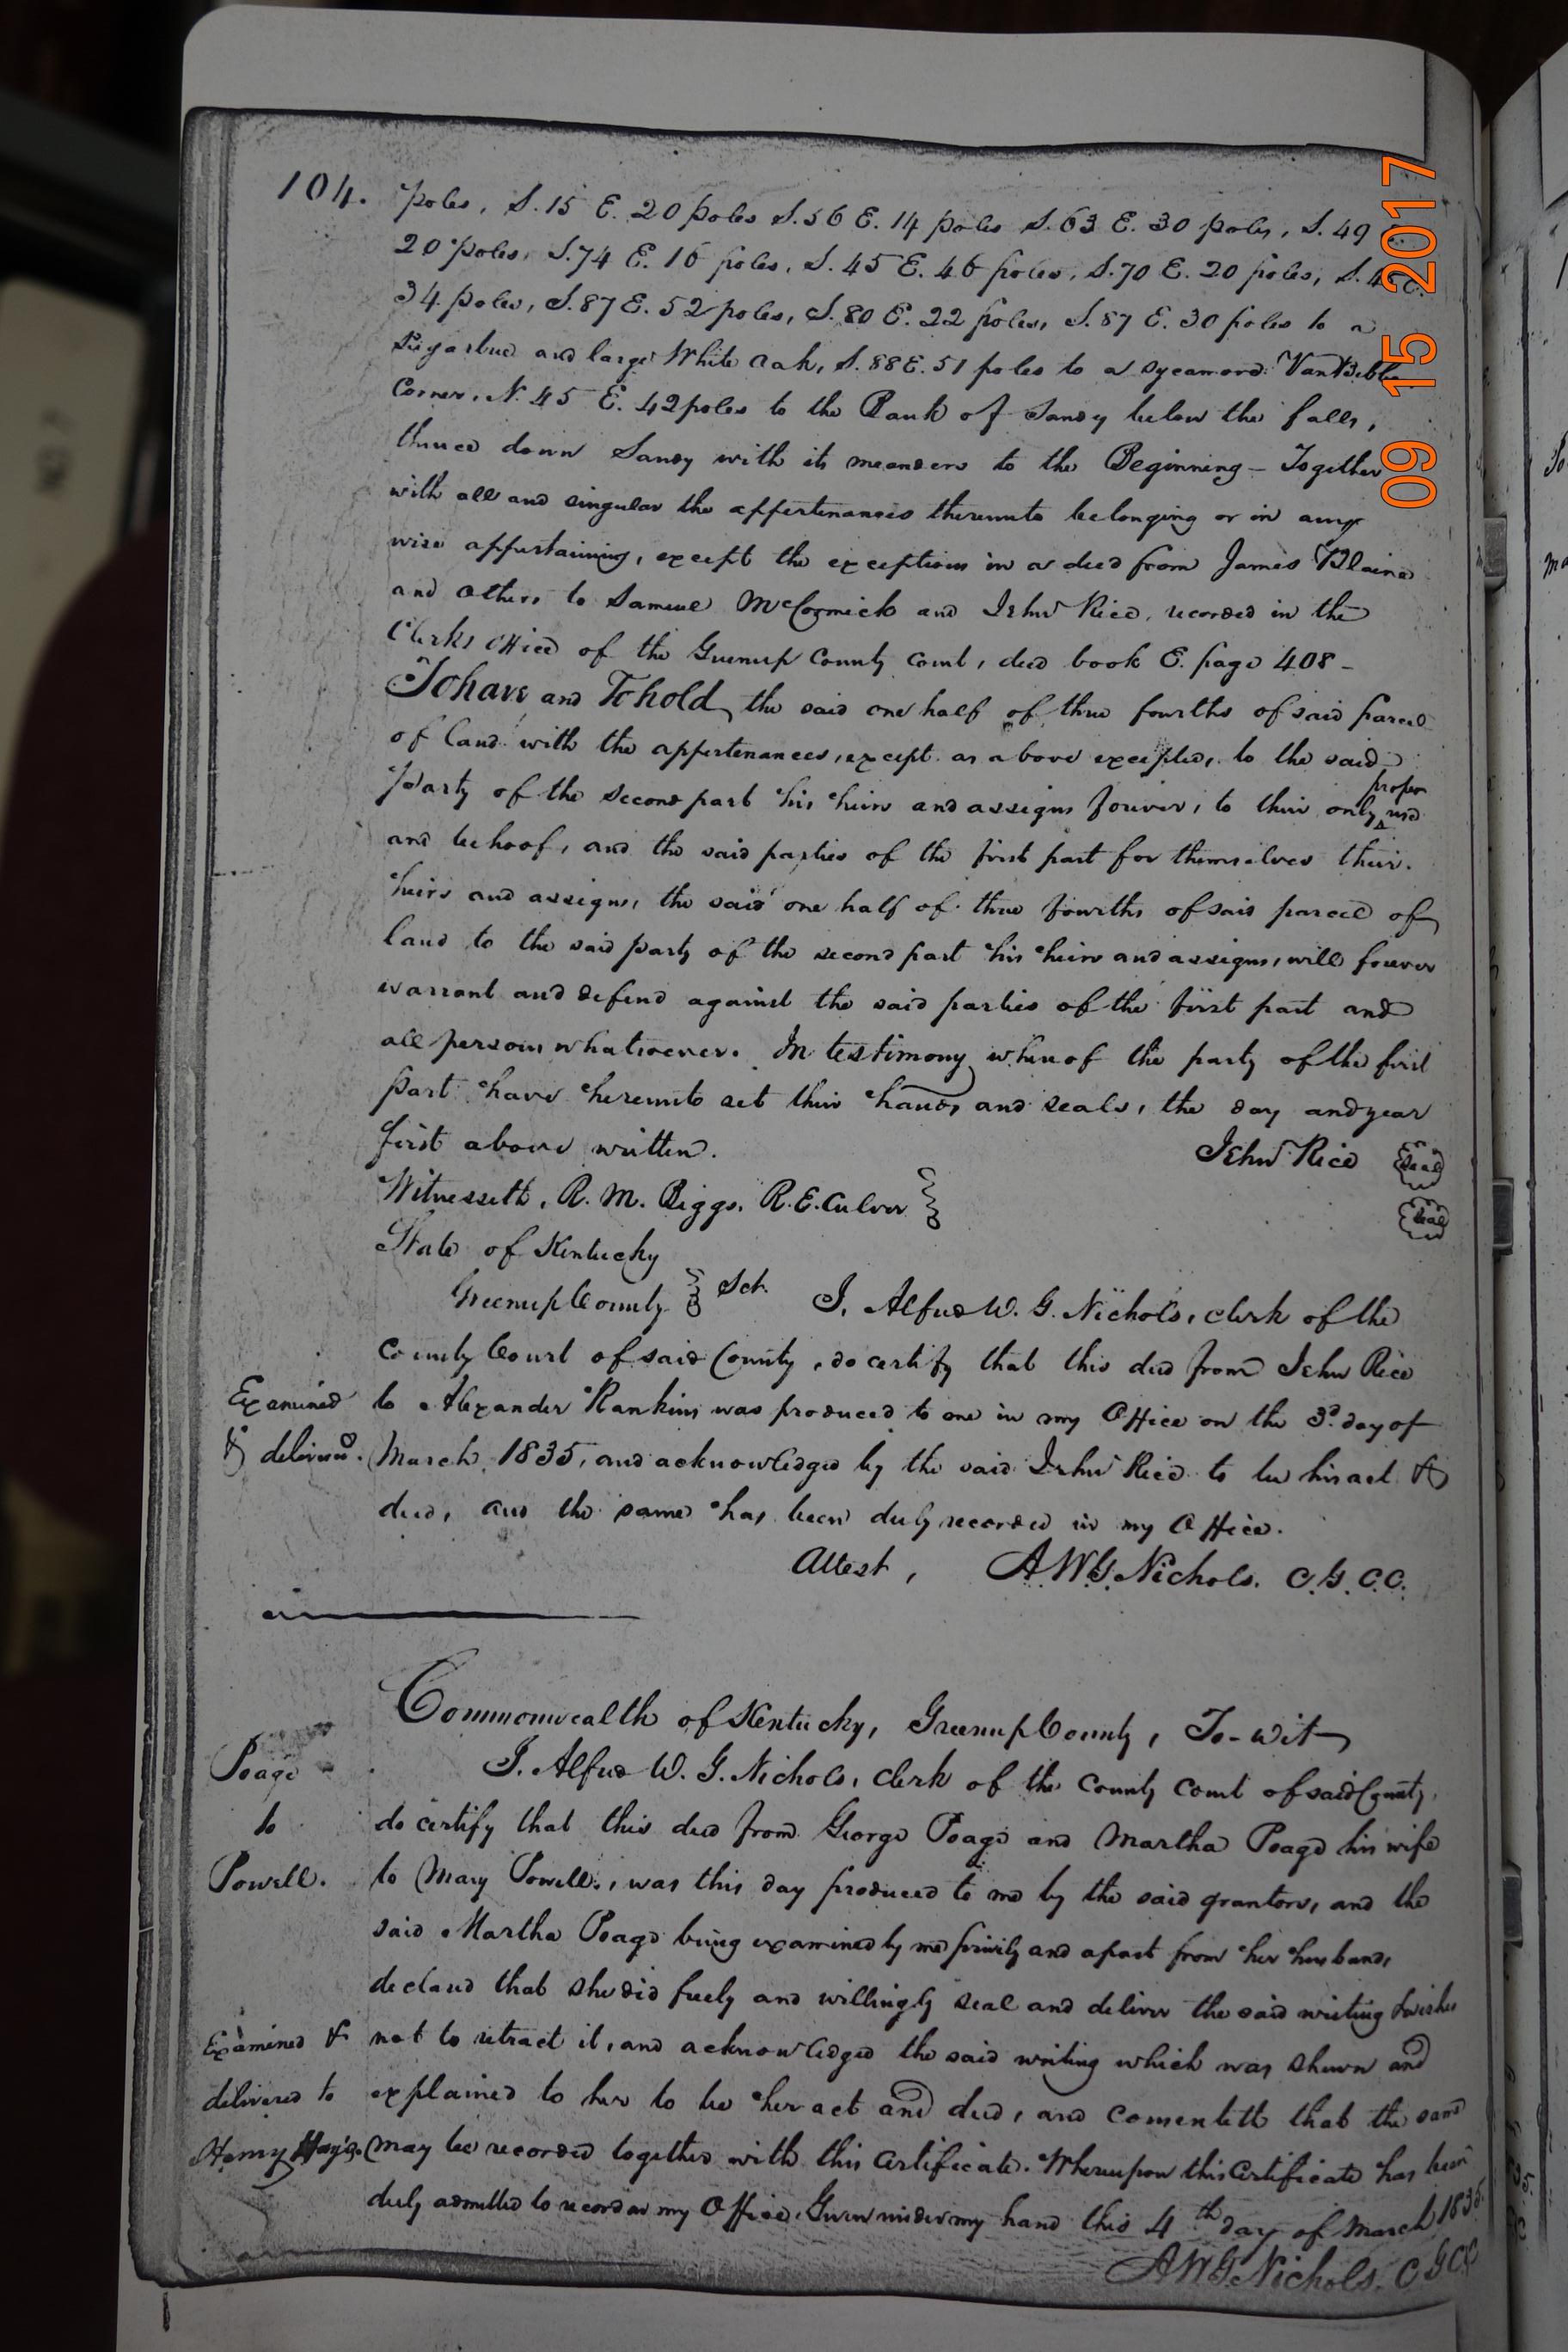 104.
poles, S. 15 E. 20 poles S. 56 E. 14 poles S. 63 E. 30 poles, S. 49
20 poles, S. 74 E. 16 poles, S. 45 E. 46 poles, S. 70 E. 20 poles, S.
34 poles, S. 87 E. 52 poles, S. 80 E. 22 poles, S. 87 E. 30 poles to a
Sugartree and large White Oak, S. 88 E. 51 poles to a sycamore VanBibber
Corner, N. 45 E. 42 poles to the Bank of Sandy below the falls,
thence down Sandy with its meanders to the Beginning – Together
with all and singular the appertenances thereunto belonging or in any
wise appertaining, except the exceptions in a deed from James Blaine
and others to Samuel McCormick and John Rice, recorded in the
Clerks Office of the Greenup County Court, deed book E. page 408 –
To have and To hold, the said one half of three fourths of said parcel
of land with the appertenances, except as above excepted, to the said
Party of the second part his heirs and assigns forever, to their only proper use
and behoof, and the said parties of the first part for themselves their
heirs and assigns, the said one half of three fourths of said parcel of
land to the said party of the second part his heirs and assigns, will forever
warrant and defend against the said parties of the first part and
all persons whatsoever. In testimony whereof the party of the first
part have hereunto set their hands and seals, the day and year
first above written.
John Rice Seal
Seal
Witnesseth, R. M. Biggs, R. E. Culver
State of Kentucky
Greenup County Sct.
I, Alfred W. G. Nichols, clerk of the
County Court of said County, do certify that this deed from John Rice
to Alexander Rankins was produced to me in my Office on the 3d. day of
March 1835, and acknowledged by the said John Rice to be his act &
deed, and the same has been duly recorded in my Office.
Attest, A. W. G. Nichols. C. G. C. C.
Examined
& delivered.
Commonwealth of Kentucky, Greenup County, To-wit
Poage
to
Powell.
I, Alfred W. G. Nichols, clerk of the County Court of said County,
do certify that this deed from George Poage and Martha Poage his wife
to Mary Powell, was this day produced to me by the said grantors, and the
said Martha Poage being examined by me privily and apart from her husband,
declared that she did freely and willingly seal and deliver the said writing & wishes
not to retract it, and acknowledged the said writing which was shewn and
explained to her to be her act and deed, and consenteth that the same
may be recorded together with this certificate. Whereupon this Certificate has been
duly admitted to record in my Office. Given under my hand this 4th day of March 1835.
A W G Nichols. C G C C
Examined &
delivered to
Henry
09 15 2017